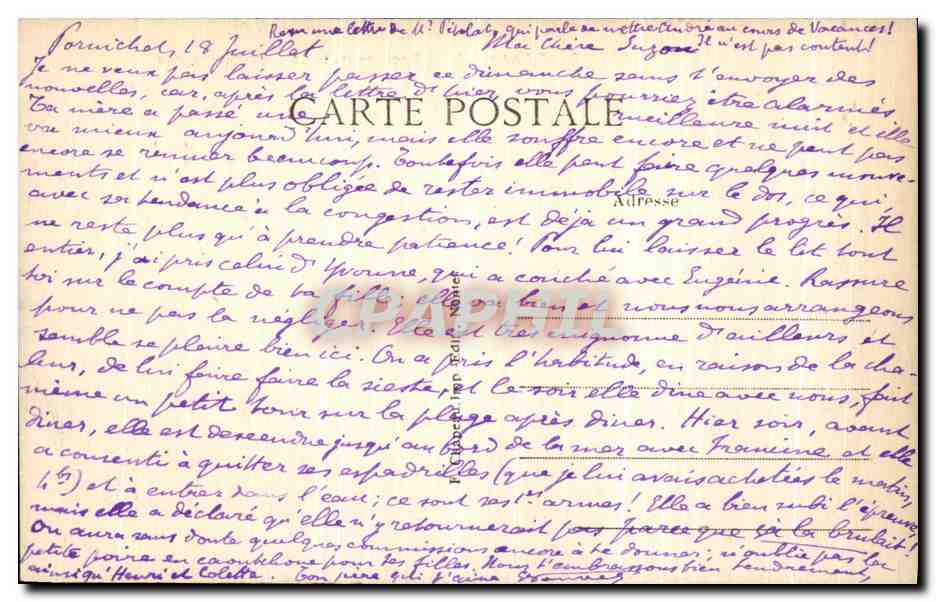 Reçu une lettre de Mr Pipolat qui parle de mettre André au cours de Vacances!
Il n'est pas content!
Pornichet, 18 Juillet
Ma chère Suzon
Je ne veux pas laisser passer ce dimanche sans t'envoyer des
nouvelles, car, après la lettre d'hier, vous pourriez être alarmés
CARTE POSTALE
Ta mère a passé une meilleure nuit et elle
va mieux aujourd'hui, mais elle souffre encore et ne peut pas
encore se remuer beaucoup. Toutefois elle peut faire quelques mouve-
ments et n'est plus obligée de rester immobile sur le dos, ce qui,
Adresse
avec sa tendance à la congestion, est déjà un grand progrès. Il
ne reste plus qu'à prendre patience! Pour lui laisser le lit tout
entier, j'ai pris celui d'Yvonne, qui a couché avec Eugénie. Rassure
toi sur le compte de ta fille; elle va bien et nous nous arrangeons
pour ne pas la négliger. Elle est très mignonne d'ailleurs et
semble se plaire bien ici. On a pris l'habitude, en raison de la cha-
leur, de lui faire faire la sieste, et le soir elle dine avec nous, fait
même un petit tour sur la plage après diner. Hier soir, avant
diner, elle est descendue jusqu'au bord de la mer avec Francine et elle
a consenti à quitter ses espadrilles (que je lui avais achetées le matin,
) et à entrer dans l'eau; ce sont ses 1es armes! Elle a bien subi l'épreuve,
mais elle a déclaré qu'elle n'y retournerait pas parce que ça la brulait!
On aura sans doute quelques commissions encore à te donner; n'oublie pas la
petite poire en caoutchouc pour tes filles. Nous t'embrassons bien tendrement,
ainsi qu'Henri et Colette. Ton père qui t'aime
F. Chapeau. Imp. Edit. Nantes
CPAPHIL